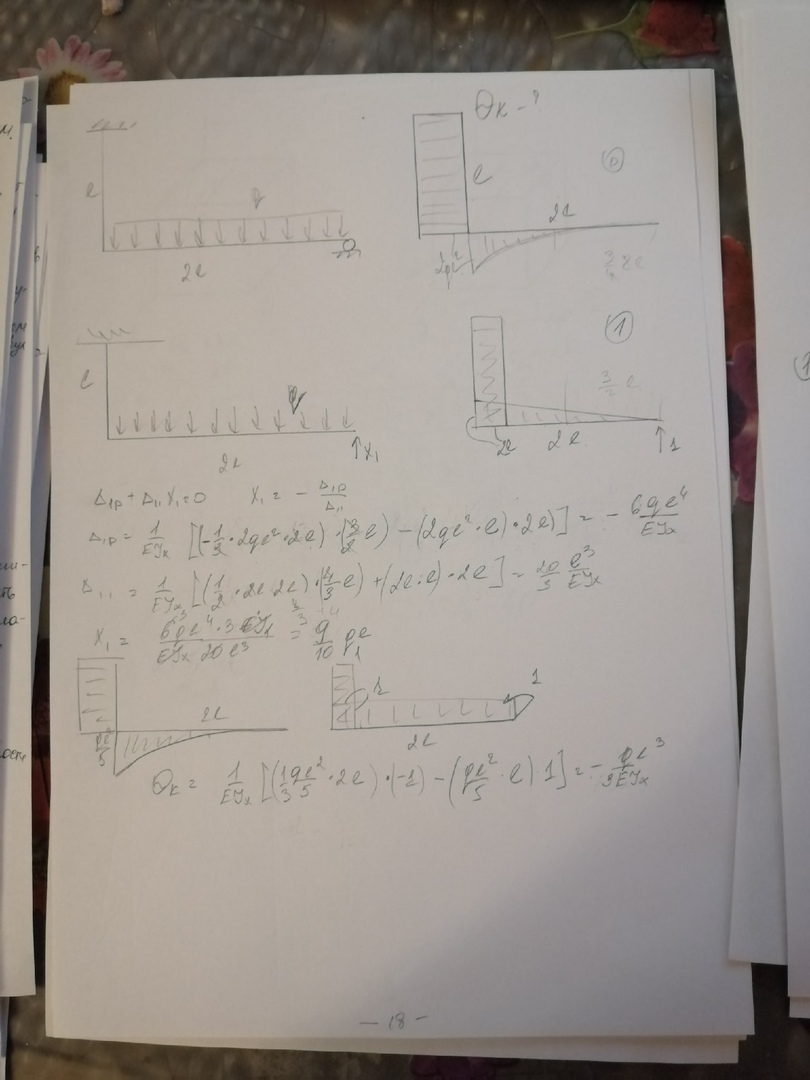 θк - ?
q
l
2l
l
2l
0
2ql²
3/4 2l
l
q
2l
X₁
1
3/2 l
2l
2l
1
Δ₁p + Δ₁₁ X₁ = 0 X₁ = - Δ₁p/Δ₁₁
Δ₁p = 1/EJx [(-1/3 · 2ql² · 2l) · (3/2 l) - (2ql² · l) · 2l)] = - 6ql⁴/EJx
Δ₁₁ = 1/EJx [(1/2 · 2l · 2l) · (4/3 l) + (2l · l) · 2l] = 20/3 l³/EJx
X₁ = 6ql⁴ · 3 EJx / EJx 20 l³ = 9/10 ql
2l
ql²/5
1
1
2l
θк = 1/EJx [(1/3 ql²/5 · 2l) · (-1) - (ql²/5 · l) · 1] = - ql³/3EJx
- 18 -